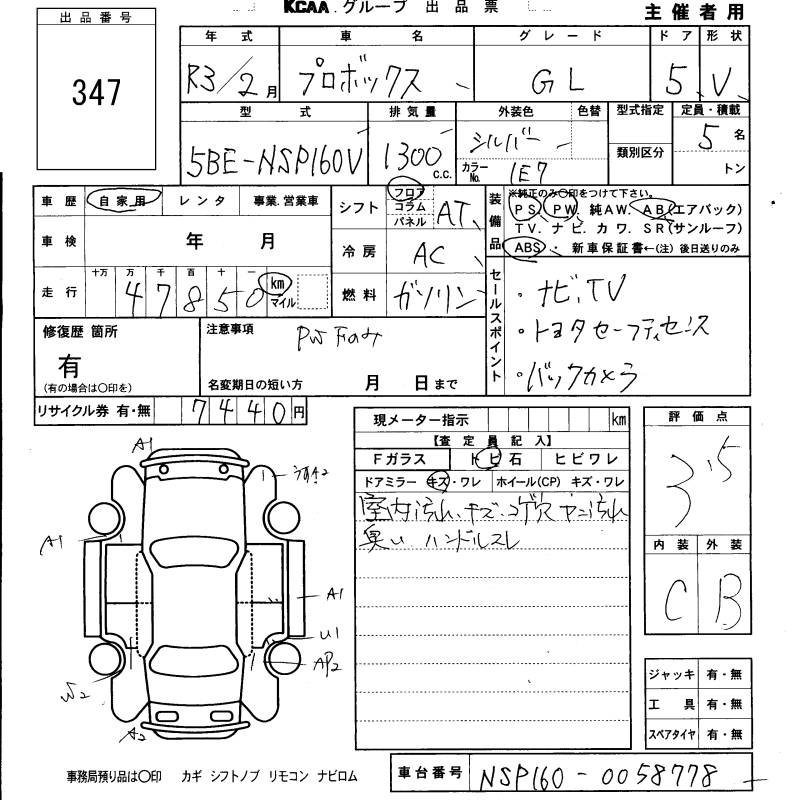 KCAA グループ 出品票
主催者用
出品番号
347
年式 車名 グレード ドア 形状
R3/2月 プロボックス GL 5 V
型式 排気量 外装色 色替 型式指定 定員・積載
5BE-NSP160V 1300 c.c. シルバー 類別区分 5名
カラーNo. 1E7 トン
車歴 自家用 レンタ 事業.営業車
車検 年 月
走行 十万 万 千 百 十 一
47850 km マイル
シフト フロア コラム パネル AT
冷房 AC
燃料 ガソリン
装備品 ※純正のみ○印をつけて下さい。
PS. PW. 純AW. AB(エアバック)
TV. ナビ. カワ. SR(サンルーフ)
ABS ・ 新車保証書←(注)後日送りのみ
セールスポイント
・ナビ、TV
・トヨタセーフティセンス
・バックカメラ
修復歴 箇所
有
(有の場合は○印を)
注意事項
PW Fのみ
名変期日の短い方 月 日まで
リサイクル券 有・無 7440円
現メーター指示 km
【査定員記入】
Fガラス トビ石 ヒビワレ
ドアミラー キズ・ワレ ホイール(CP) キズ・ワレ
室内汚れ、キズ・コゲ穴 ヤニ汚れ
臭い ハンドルスレ
評価点
3.5
内装 外装
C B
ジャッキ 有・無
工具 有・無
スペアタイヤ 有・無
A1
うすA2
A1
A1
U1
AP2
W2
A2
事務局預り品は○印 カギ シフトノブ リモコン ナビロム
車台番号 NSP160-0058778